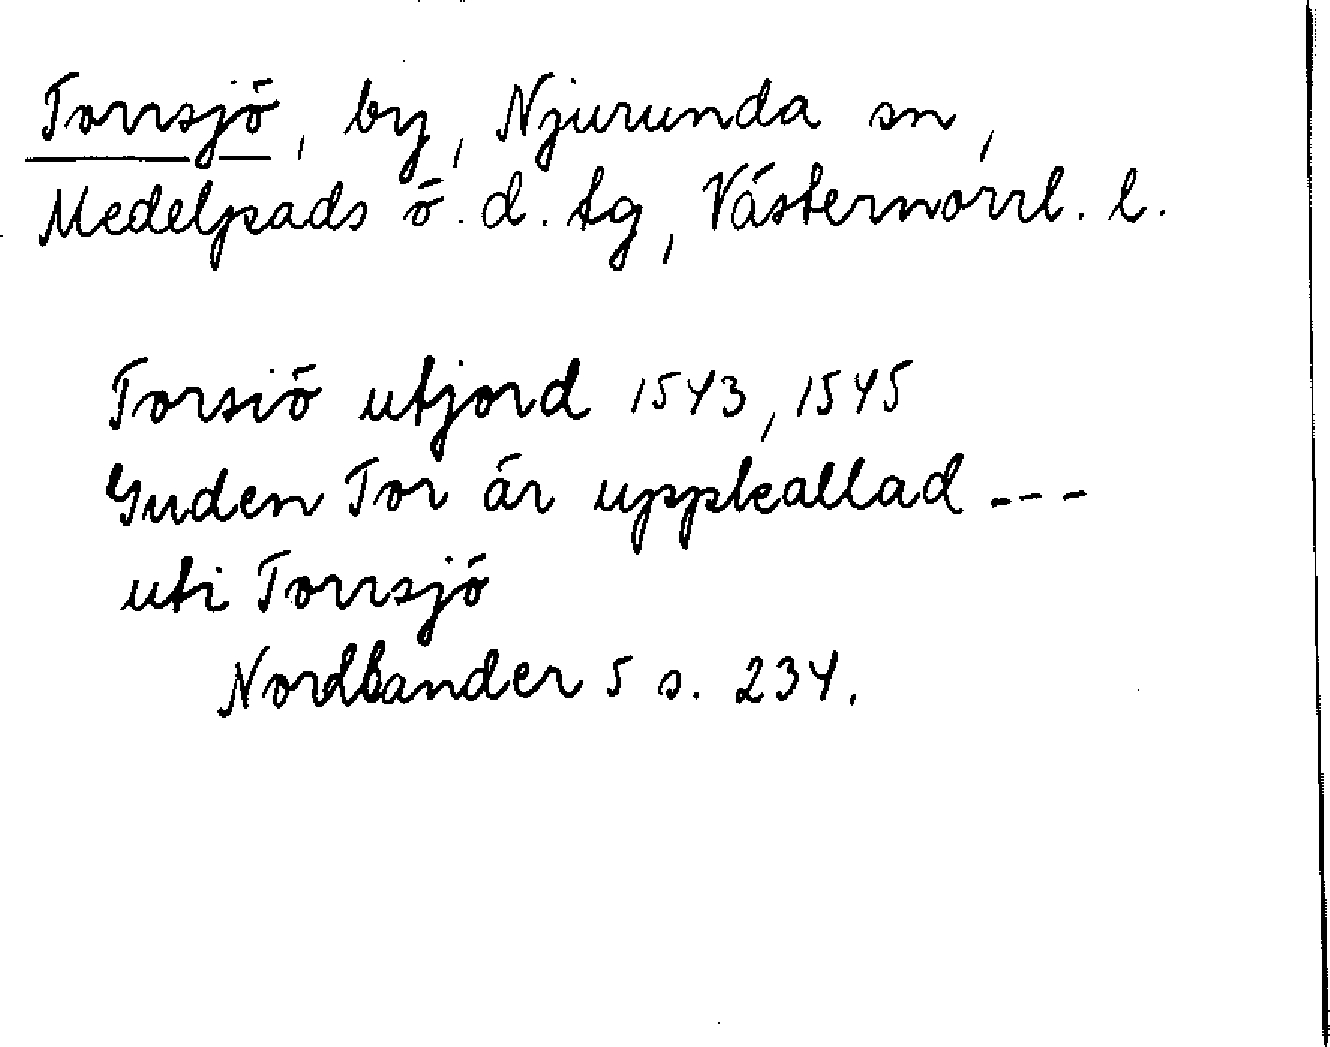 Torrsjö, by, Njurunda sn,
Medelpads ö. d. tg, Västernorrl. l.
Torsiö utjord 1543, 1545
Guden Tor är uppkallad ---
uti Torrsjö
Nordlander 5 s. 234.